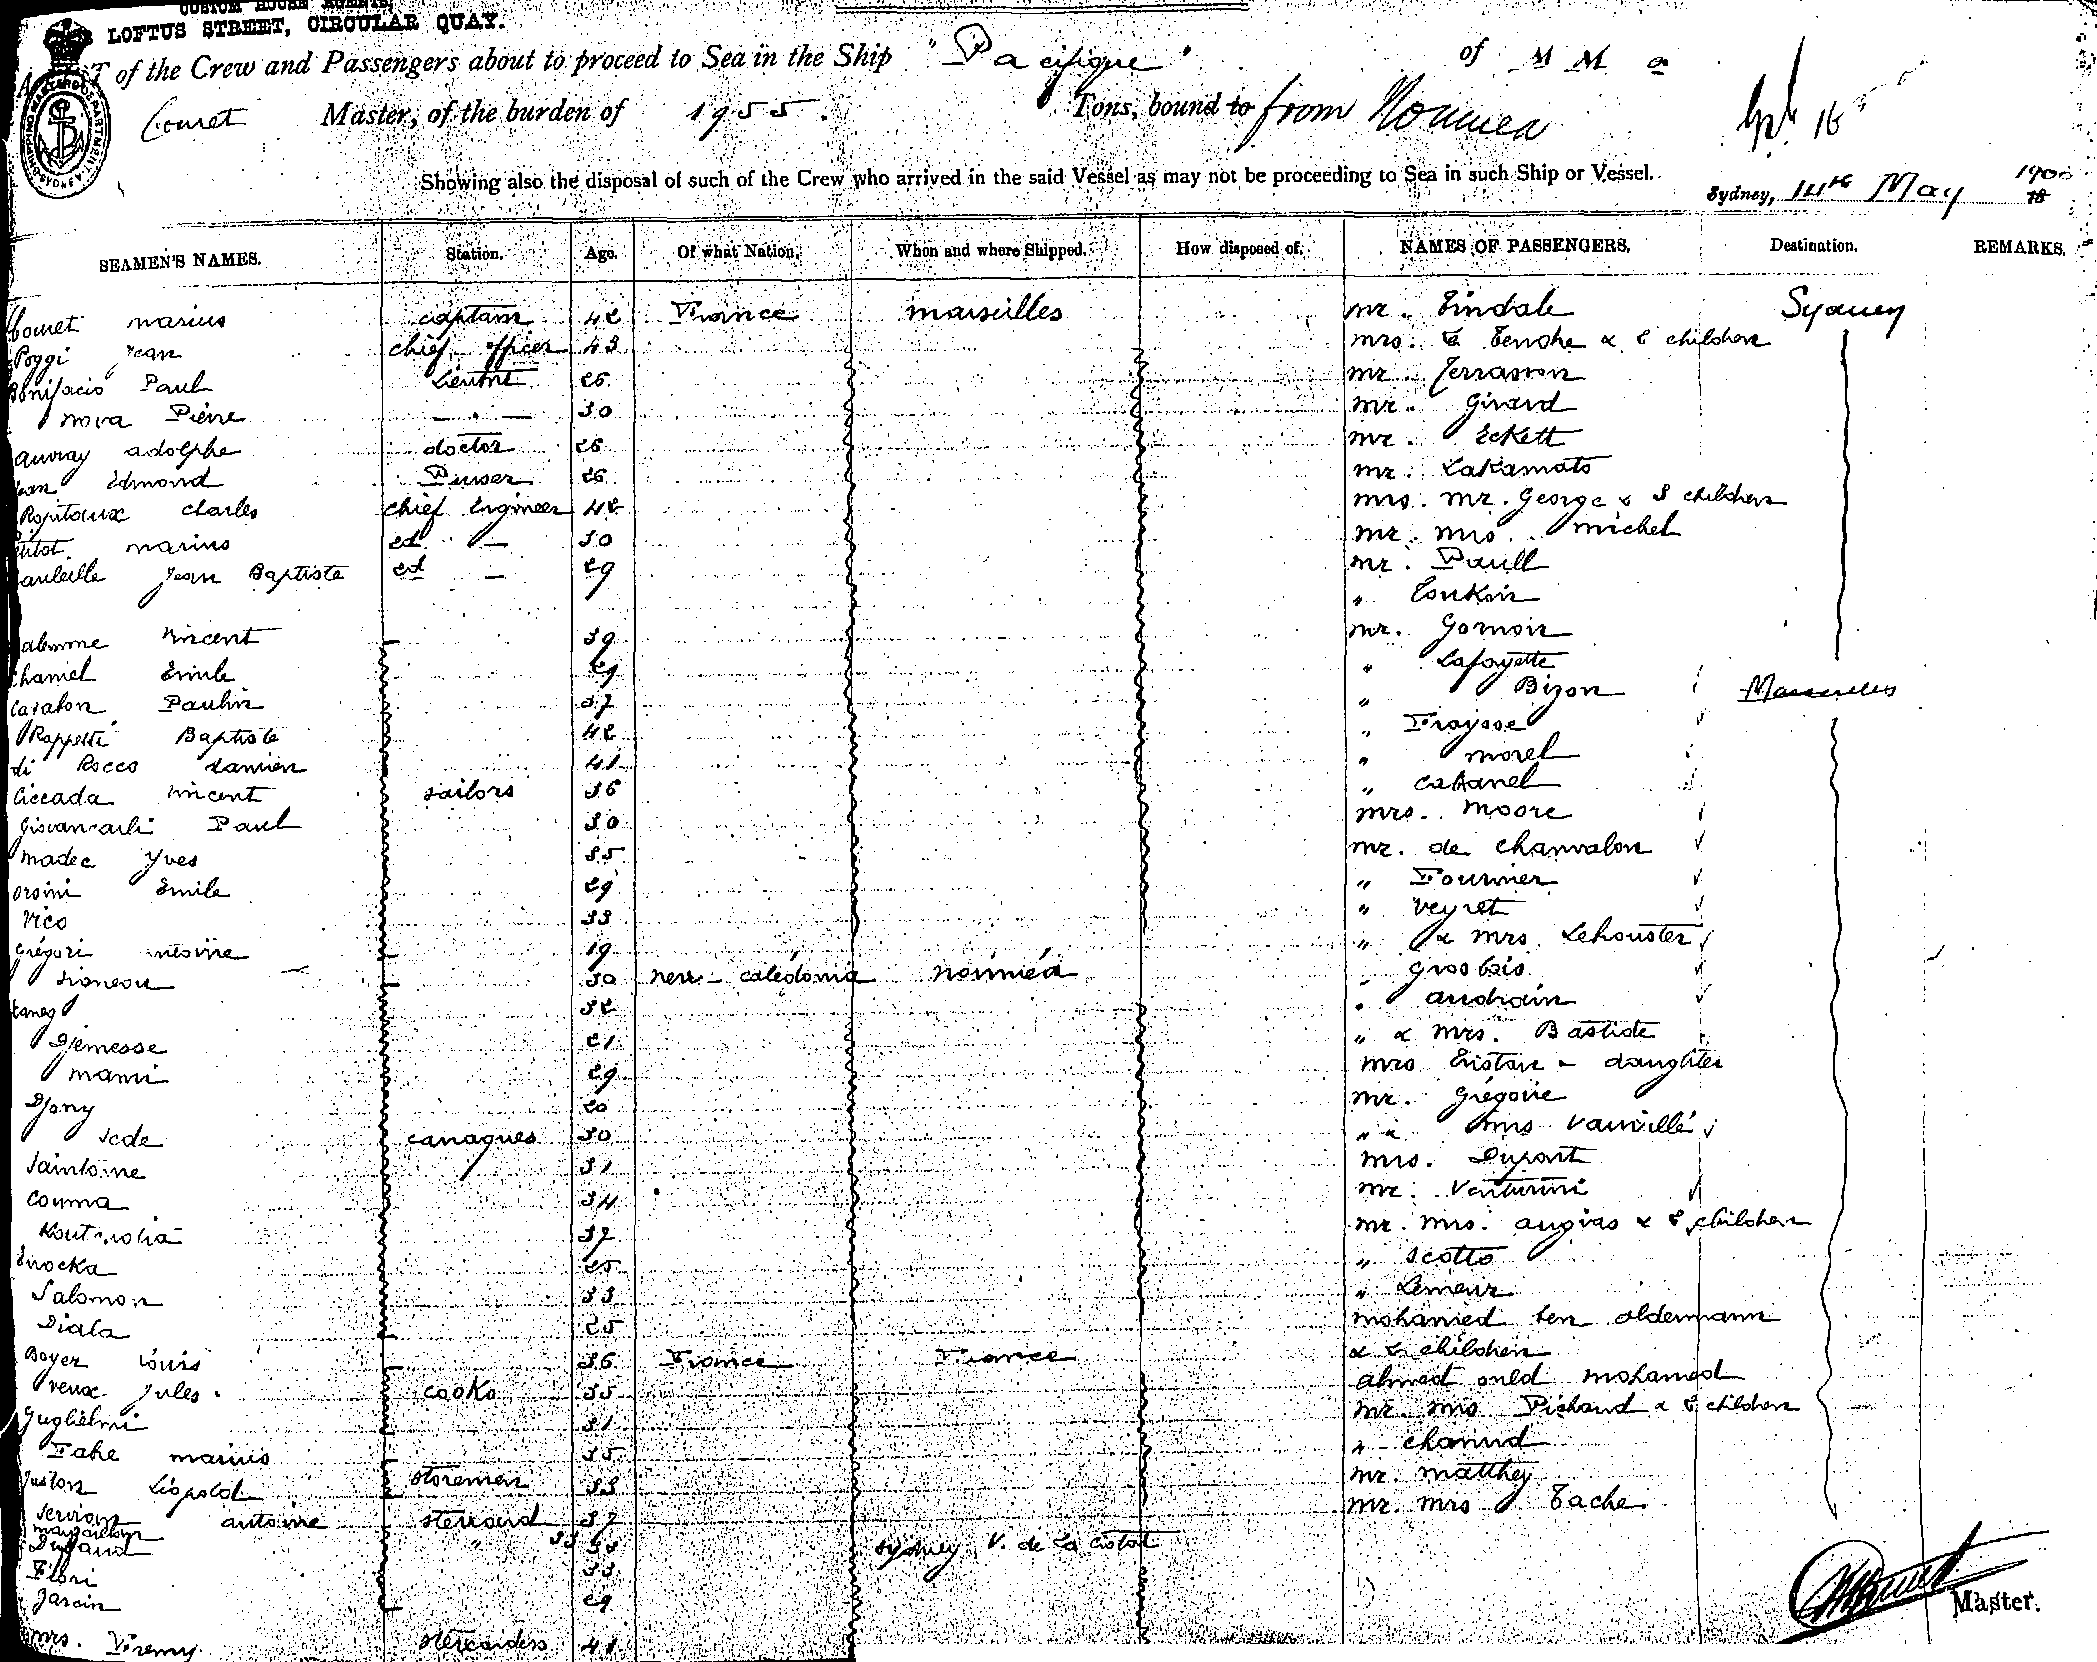 CUSTOM HOUSE AGENTS,
LOFTUS STREET, CIRCULAR QUAY.
A LIST of the Crew and Passengers about to proceed to Sea in the Ship "Pacifique" of M M
Couret Master, of the burden of 1955. Tons, bound to from Noumea
Showing also the disposal of such of the Crew who arrived in the said Vessel as may not be proceeding to Sea in such Ship or Vessel.
Sydney, 14th May 190
SEAMEN'S NAMES. Station. Age. Of what Nation. When and where Shipped. How disposed of. NAMES OF PASSENGERS. Destination. REMARKS.
Couret marius captain 42 France marseilles mr. Tindale Sydney
Poggi Jean chief officer 43 mrs. & 2 children
Bonifacio Paul Lieutnt 26 mr. Terrasson
nova Pierre — . — 30 mr. Girard
auvray adolphe doctor 26 mr. Eckett
Jean Edmond Purser 26 mr. Lakamato
Ropitaux charles chief Engineer 42 mrs. mr. George & 3 children
marius 2d — 30 mr. mrs. michel
Jean Baptiste 2d — 29 mr. Paull
" Tonkin
Vincent 39 mr. Gornoir
Emile 29 " Lafayette
Casalon Paulin 37 " Bizon Marseilles
Rappetti Baptiste 42 " Fraysse
di Rocco damien 41 " morel
Ciccada Vincent sailors 36 " cabanel
Giovancarli Paul 30 mrs. Moore
madec Yves 35 mr. de chanvalon
orsini Emile 29 " Fournier
Vico 33 " Veyret
Grégori antoine 19 " & mrs. Lehouster
30 new-calédonia nouméa " Grosbois
32 " audrain
Djemesse 21 " & mrs. Bastide
mami 29 mrs Tristan & daughter
Djony 20 mr. Grégoire
Sede canaques 30 " & mrs Vauvillé
Saintoine 31 mrs. Duport
Couma 34 mr. Venturini
37 mr. mrs. augias & 2 children
Enocka 25 " Scotto
Salomon 33 " Lemeur
Diala 25 mohamed ben oldermann
Boyer Louis 36 France France & 2 children
veux Jules. cooks 35 ahmed ould mohamed
Guglielmi 31 mr. mrs Pichaud & 2 children
Fabre marius 35 " chanud
Juston Léopold storemen 33 mr. matthey
Servian antoine steward 37 mr. mrs Tache
Durand " 33 sydney V. de La ciotat
Flori 33
Jarain 29
mrs. Viremy stewardess 41
Master.